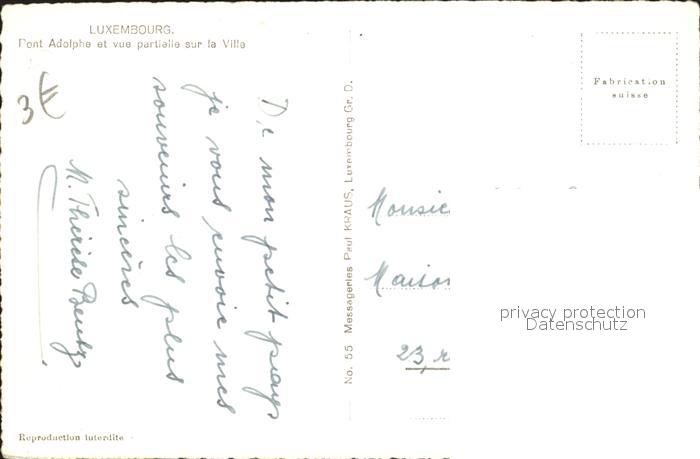 LUXEMBOURG.
Pont Adolphe et vue partielle sur la Ville
3 €
De mon petit pays
je vous envoie mes
souvenirs les plus
sincères
M. Thérèse Bentz
No. 55 Messageries Paul KRAUS, Luxembourg Gr. D.
Fabrication
suisse
Monsie
Maison
23, r
privacy protection
Datenschutz
Reproduction interdite